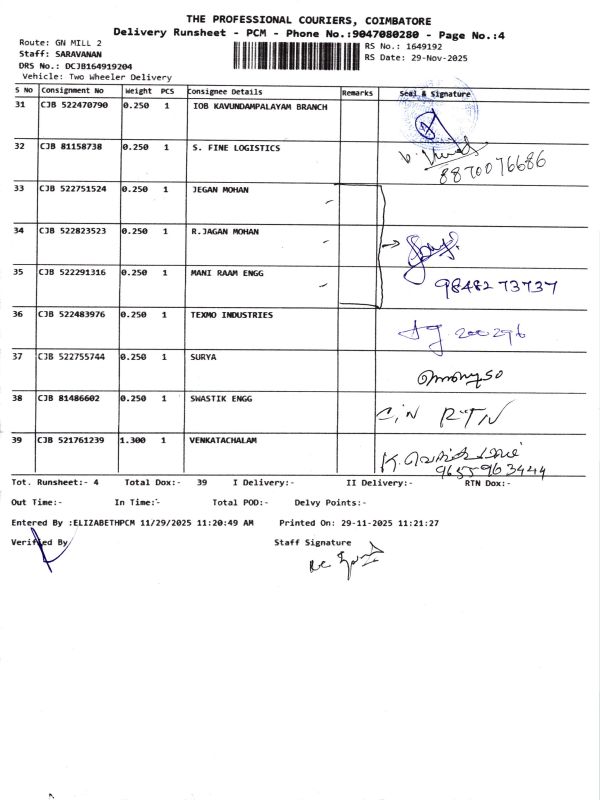 THE PROFESSIONAL COURIERS, COIMBATORE
Delivery Runsheet - PCM - Phone No.:9047080280 - Page No.:4
Route: GN MILL 2
Staff: SARAVANAN
DRS No.: DCJB164919204
Vehicle: Two Wheeler Delivery
RS No.: 1649192
RS Date: 29-Nov-2025
S No Consignment No Weight PCS Consignee Details Remarks Seal & Signature
31 CJB 522470790 0.250 1 IOB KAVUNDAMPALAYAM BRANCH
32 CJB 81158738 0.250 1 S. FINE LOGISTICS
8870076686
33 CJB 522751524 0.250 1 JEGAN MOHAN
34 CJB 522823523 0.250 1 R.JAGAN MOHAN
35 CJB 522291316 0.250 1 MANI RAAM ENGG
9848273737
36 CJB 522483976 0.250 1 TEXMO INDUSTRIES
37 CJB 522755744 0.250 1 SURYA
38 CJB 81486602 0.250 1 SWASTIK ENGG
C/N RTN
39 CJB 521761239 1.300 1 VENKATACHALAM
9655963444
Tot. Runsheet:- 4 Total Dox:- 39 I Delivery:- II Delivery:- RTN Dox:-
Out Time:- In Time:- Total POD:- Delvy Points:-
Entered By :ELIZABETHPCM 11/29/2025 11:20:49 AM Printed On: 29-11-2025 11:21:27
Verified By Staff Signature